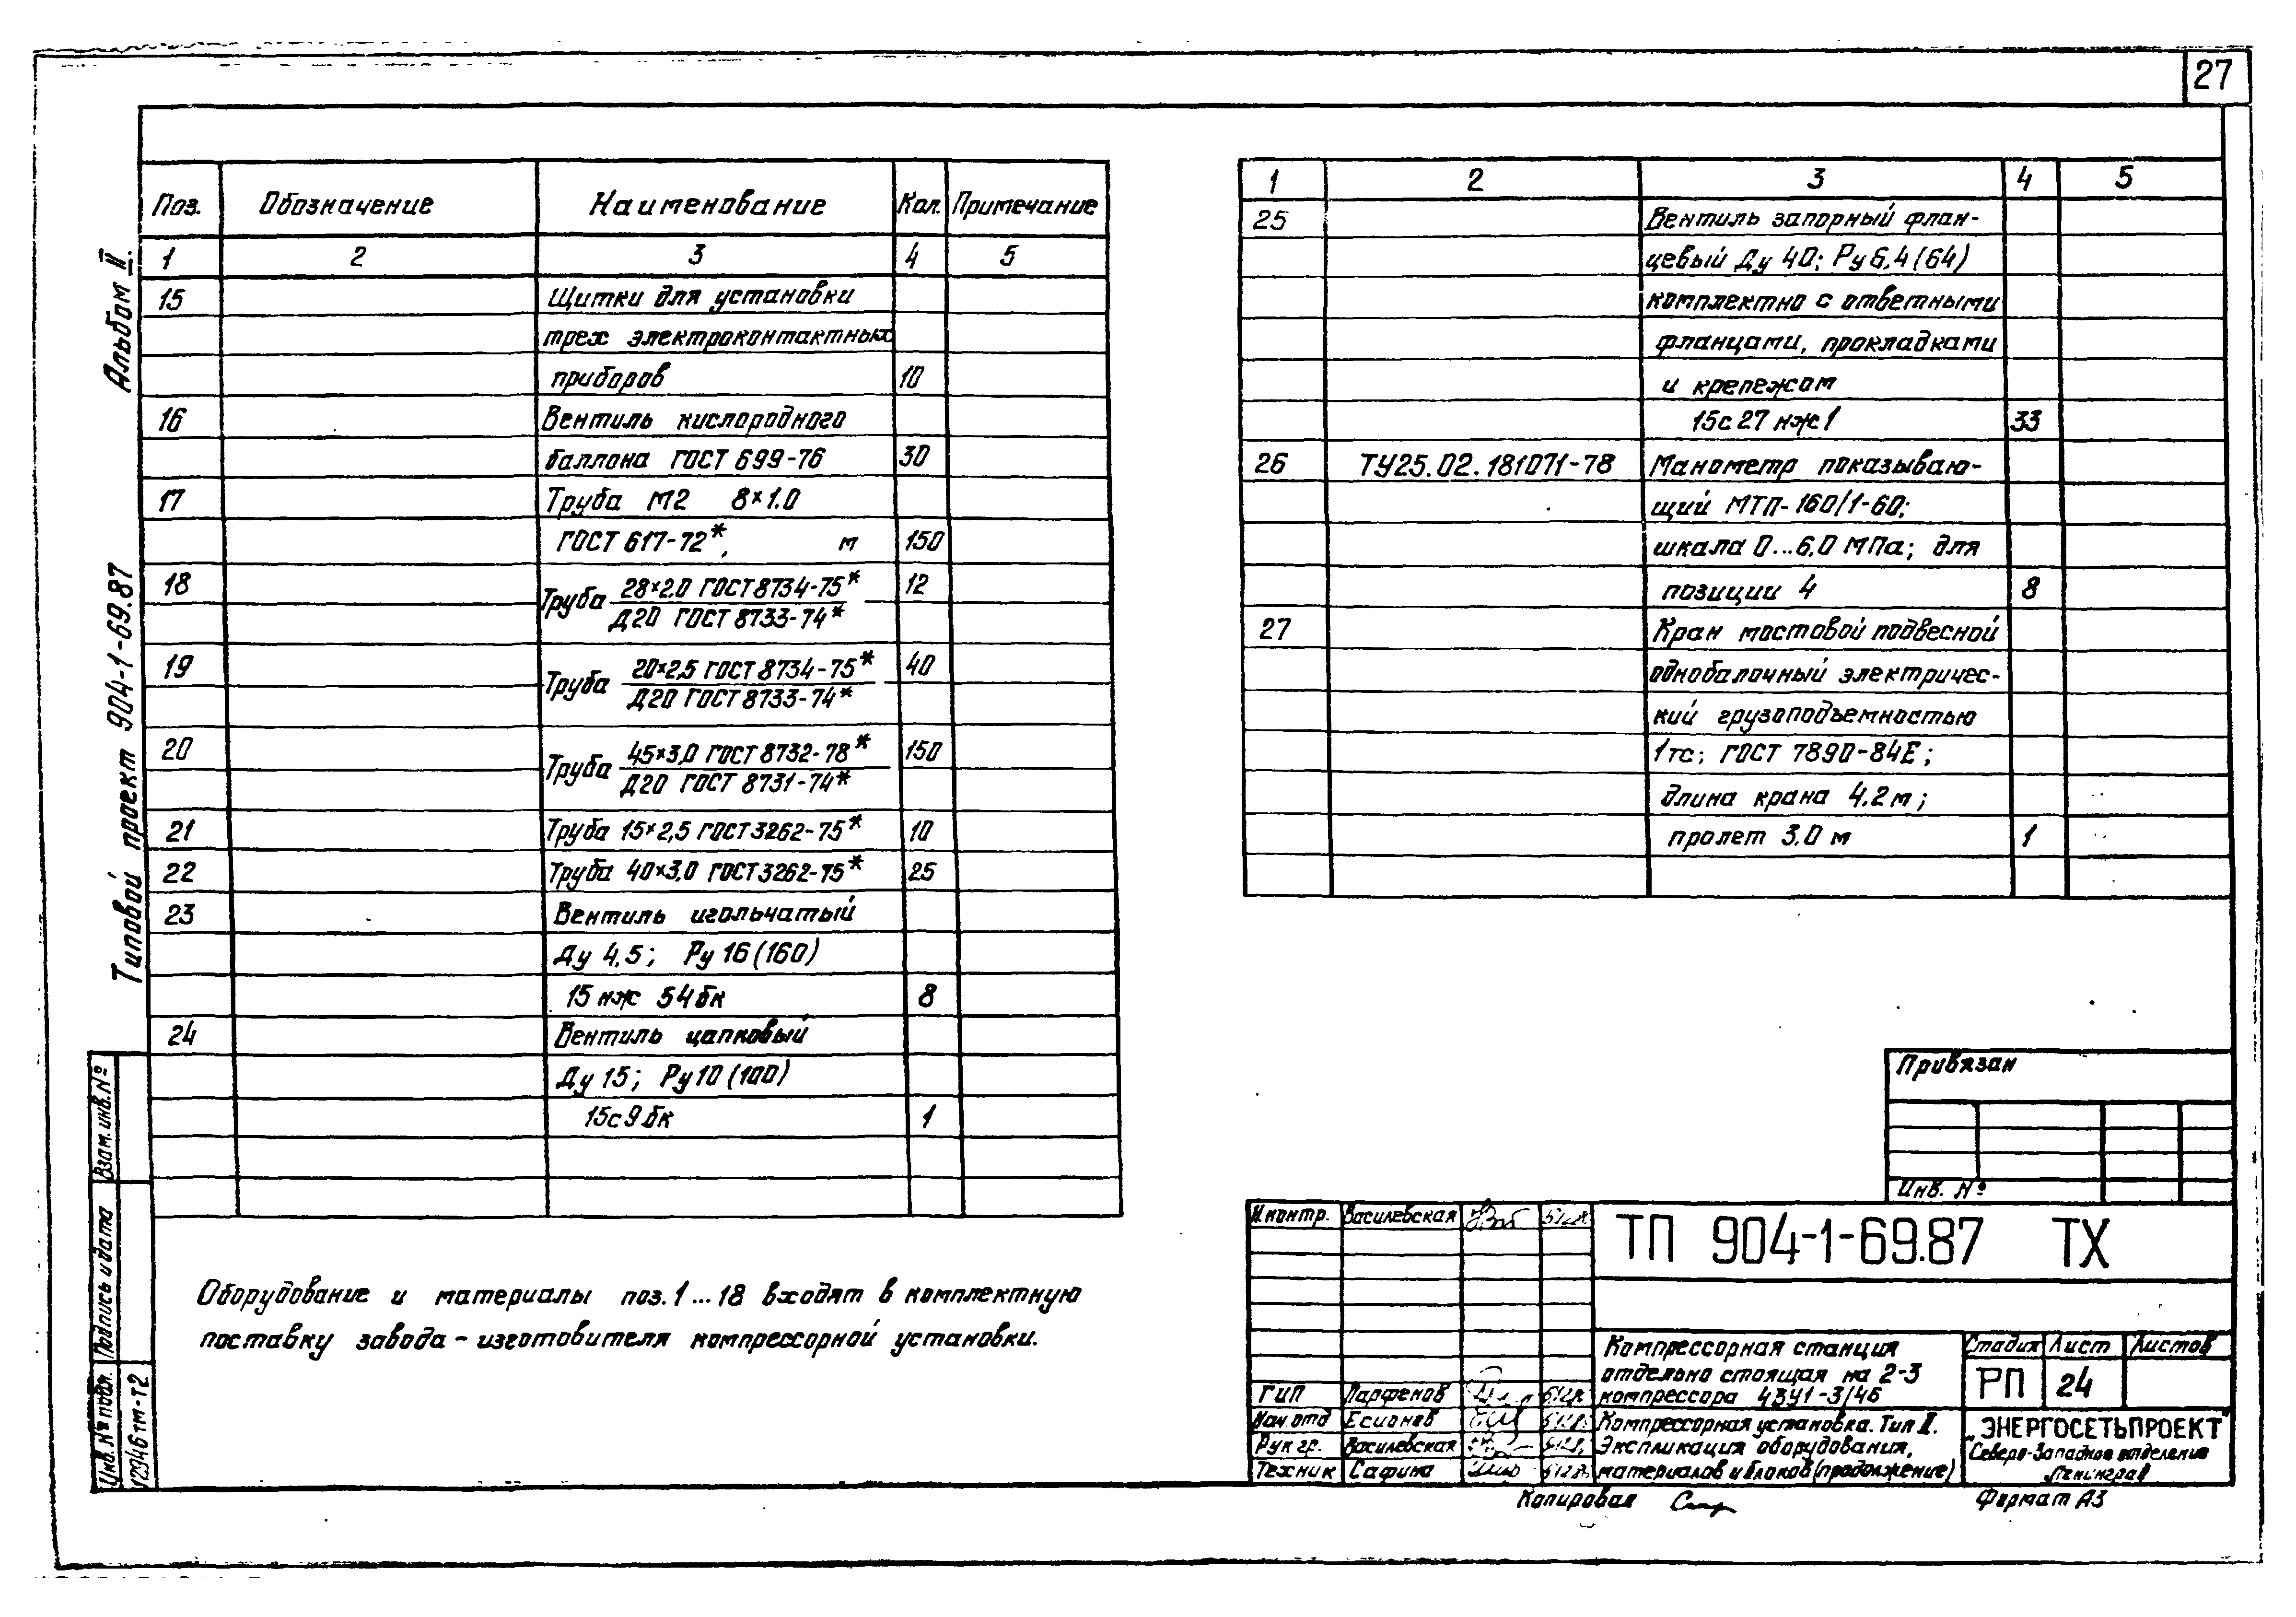 27
Альбом II.
Типовой проект 904-1-69.87
Поз. Обозначение Наименование Кол. Примечание
1 2 3 4 5
15 Щитки для установки
трех электроконтактных
приборов 10
16 Вентиль кислородного
баллона ГОСТ 699-76 30
17 Труба М2 8×1.0
ГОСТ 617-72*, м 150
18 Труба 28×2.0 ГОСТ 8734-75* 12
Д20 ГОСТ 8733-74*
19 Труба 20×2,5 ГОСТ 8734-75* 40
Д20 ГОСТ 8733-74*
20 Труба 45×3,0 ГОСТ 8732-78* 150
Д20 ГОСТ 8731-74*
21 Труба 15×2,5 ГОСТ 3262-75* 10
22 Труба 40×3,0 ГОСТ 3262-75* 25
23 Вентиль игольчатый
Ду 4,5; Ру 16 (160)
15 нж 54 бк 8
24 Вентиль цапковый
Ду 15; Ру 10 (100)
15с 9 бк 1
Оборудование и материалы поз. 1 ... 18 входят в комплектную
поставку завода - изготовителя компрессорной установки.
1 2 3 4 5
25 Вентиль запорный флан-
цевый Ду 40; Ру 6,4 (64)
комплектно с ответными
фланцами, прокладками
и крепежом
15с 27 нж 1 33
26 ТУ25.02.181071-78 Манометр показываю-
щий МТП-160/1-60;
шкала 0...6,0 МПа; для
позиции 4 8
27 Кран мостовой подвесной
однобалочный электричес-
кий грузоподъемностью
1тс; ГОСТ 7890-84Е;
длина крана 4.2 м;
пролет 3.0 м 1
Привязан
Инв. №
Н.контр. Василевская
ТП 904-1-69.87 ТХ
Компрессорная станция
отдельно стоящая на 2-3
компрессора 4ВУ1-3/46
Стадия Лист Листов
РП 24
ГИП Парфенов
Нач.отд Есионов
Рук гр. Василевская
Техник Сафина
Компрессорная установка. Тип II.
Экспликация оборудования,
материалов и блоков (продолжение)
„ЭНЕРГОСЕТЬПРОЕКТ"
Северо-Западное отделение
Ленинград
Копировал
Формат А3
Взам. инв. №
Подпись и дата
Инв. № подл.
12946тм-т2